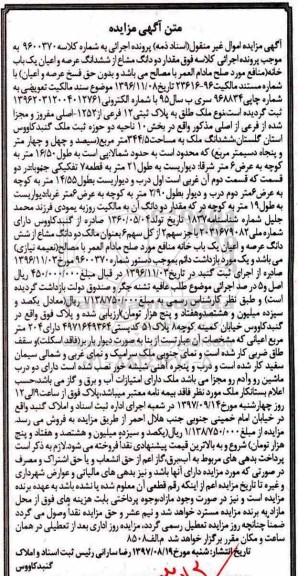 متن آگهی مزایده
آگهی مزایده اموال غیر منقول(اسناد ذمه) پرونده اجرائی به شماره کلاسه ۹۶۰۰۳۷۰ به
موجب پرونده اجرائی کلاسه فوق مقدار دو دانگ مشاع از ششدانگ عرصه و اعیان یک باب
خانه(منافع مورد صلح مادام العمر با مصالح می باشد و بدون حق فسخ عرصه و اعیان) با
شماره مستند مالکیت ۹۶-۲۳۶۱۶ ۱۳۹۶/۱۱/۰۸ موضوع سند مالکیت تعویضی به
شماره چاپی ۹۶۸۸۳۴ سری ب سال ۹۵ با شماره الکترونیکی ۱۳۹۶۲۰۳۱۲۰۰۴۰۱۲۷۶۱
ثبت گردیده است،نوع ملک طلق به پلاک ثبتی ۱۲ فرعی از ۱۲۵۳-اصلی مفروز و مجزا
شده از فرعی از اصلی مذکور واقع در بخش ۱۰ ناحیه دو حوزه ثبت ملک گنبدکاووس
استان گلستان،ششدانگ ملک به مساحت ۳۴۴/۵مترمربع(سیصد و چهل و چهار متر
و پنجاه دسیمتر مربع) که محدود است به حدود شمالا:پی است به طول ۱۶/۵۰ متر به
کوچه به عرض ۶متر شرقا: دیواریست به طول ۲۱ متر به قطعه ۷ تفکیکی جنوبا:در دو
قسمت که قسمت دوم آن غربی است اول درب و دیواریست بطول ۱۴/۵۵ متر به کوچه
به عرض ۶متر دوم درب و دیوار بطول ۲/۹۰ متر به کوچه به عرض ۶متر غربا:دیواریست
به طول ۱۹ متر به کوچه در که مقدار دو دانگ آن به مالکیت روزبه یمودی فرزند محمد
جلیل شماره شناسنامه ۱۸۳۷ تاریخ تولد ۱۳۶۰/۰۵/۰۴ صادره از گنبدکاووس دارای
شماره ملی ۲۰۳۱۶۷۹۰۸۲ با جز سهم ۲ از کل سهم ۶ بعنوان مالک دو دانگ مشاع از شش
دانگ عرصه و اعیان یک باب خانه منافع مورد صلح مادام العمر با مصالح(نعیمه نیازی)
می باشد و یک مورد بازداشت دائم بموجب دستور شماره ۹۶۰۰۳۷۰ مورخ ۱۳۹۶/۱۱/۰۳
صادره از اجرای ثبت گنبد در تاریخ ۱۳۹۶/۱۱/۰۳ در قبال مبلغ ۴۵۰/۰۰۰/۰۰۰ ریال
اصل و ۵ در صد اجرائی موضوع طلب عافیه تشنه جگر و صندوق دولت بازداشت گردیده
است) و طبق نظر کارشناس رسمی به مبلغ ۱/۱۳۸/۷۵۰/۰۰۰ ریال(معادل یکصد و
سیزده میلیون و هشتصد و هفتاد و پنج هزار تومان)ارزیابی شده و پلاک فوق واقع در
گنبدکاووس خیابان کمینه کوچه ۸ پلاک ۵۱ کدپستی ۴۹۷۱۶۴۹۳۶۴ دارای ۲۰۴ متر
مربع اعیانی که مشخصات آن عبارتست از بنا به صورت دیوار باربر(فاقد اسکلت)و سقف
طاق ضربی کار شده است و نمای جنوبی ملک سرامیک و نمای غربی و شمالی سیمان
سفید کار شده است و درب و پنجره آهنی شیشه خور نصب شده است دارای دو درب
ماشین رو و آدم رو مجزا می باشد ملک دارای امتیازات آب و برق و گاز می باشد،حسب
اعلام بستانکار ملک مورد نظر فاقد بیمه نامه معتبر میباشد،پلاک فوق از ساعت ۹ الی ۱۲
روز چهارشنبه مورخ ۱۳۹۷/۰۹/۱۴ در شعبه اجرای اداره ثبت اسناد و املاک گنبد واقع
در خیابان امام خمینی جنوبی جنب هلال احمر از طریق مزایده به فروش می رسد.
مزایده از مبلغ ۱/۱۳۸/۷۵۰/۰۰۰ ریال(یکصد و سیزده میلیون و هشتصد و هفتاد و پنج
هزار تومان) شروع و به بالاترین قیمت پیشنهادی نقدا فروخته می شود.لازم به ذکر است
پرداخت بدهی های مربوط به آب،برق،گاز اعم از حق انشعاب و یا حق اشتراک و مصرف
در صورتی که مورد مزایده دارای آنها باشد و نیز بدهی های مالیاتی و عوارض شهرداری
و غیره تا تاریخ مزایده اعم از اینکه رقم قطعی آن معلوم شده یا نشده باشد به عهده برنده
مزایده است و نیز در صورت وجود مازاد،وجوه پرداختی بابت هزینه های فوق از محل
مازاد به برنده مزایده مسترد خواهد شد و نیم عشر و حق مزایده نقدا وصول می گردد
ضمنا چنانچه روز مزایده تعطیل رسمی گردد، مزایده روز اداری بعد از تعطیلی در همان
ساعت و مکان مقرر برگزار خواهد شد م.الف ۸۵۰۸
تاریخ انتشار:شنبه مورخ ۱۳۹۷/۰۸/۱۹ رضا سارانی رئیس ثبت اسناد و املاک
گنبدکاووس